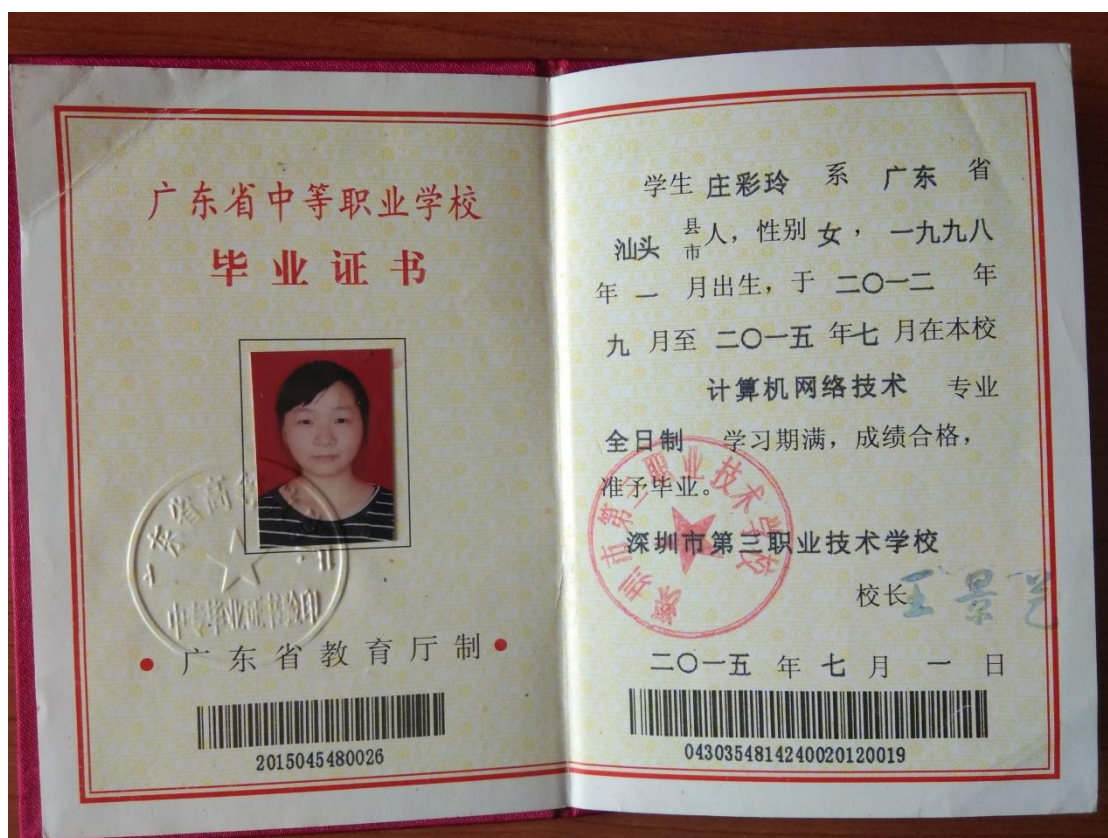 广东省中等职业学校
毕业证书
中专毕业证书验印
•广东省教育厅制•
2015045480026
学生 庄彩玲 系 广东 省
汕头 县市人，性别 女，一九九八
年 一 月出生，于 二〇一二 年
九 月至 二〇一五 年七 月在本校
计算机网络技术 专业
全日制 学习期满，成绩合格，
准予毕业。
深圳市第三职业技术学校
深圳市第三职业技术学校
校长
二〇一五 年 七 月 一 日
0430354814240020120019